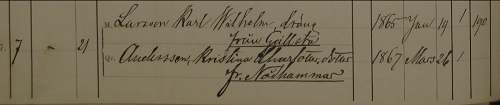 M. Larsson Karl Wilhelm, dräng 1865 Jan 19 1 190
från Gällsta
7 — 21 Andersson, Kristina Charlotta, dotter 1867 Mars 26 1
fr. Nödhammar